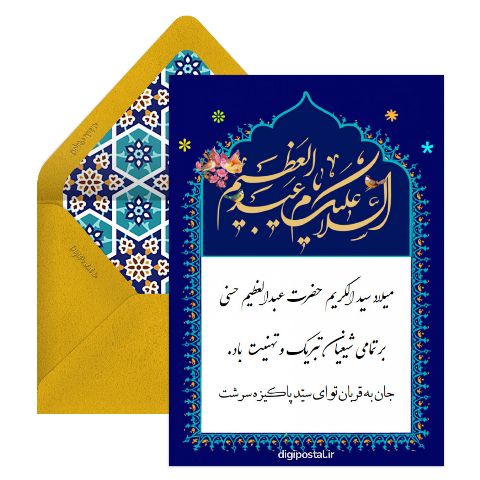 السلام علیک یا عبدالعظیم
میلاد سید الکریم حضرت عبدالعظیم حسنی
بر تمامی شیعیان تبریک و تهنیت باد.
جان به قربان تو ای سیّد پاکیزه سرشت
digipostal.ir
DigiPostal.ir
DigiPostal.ir